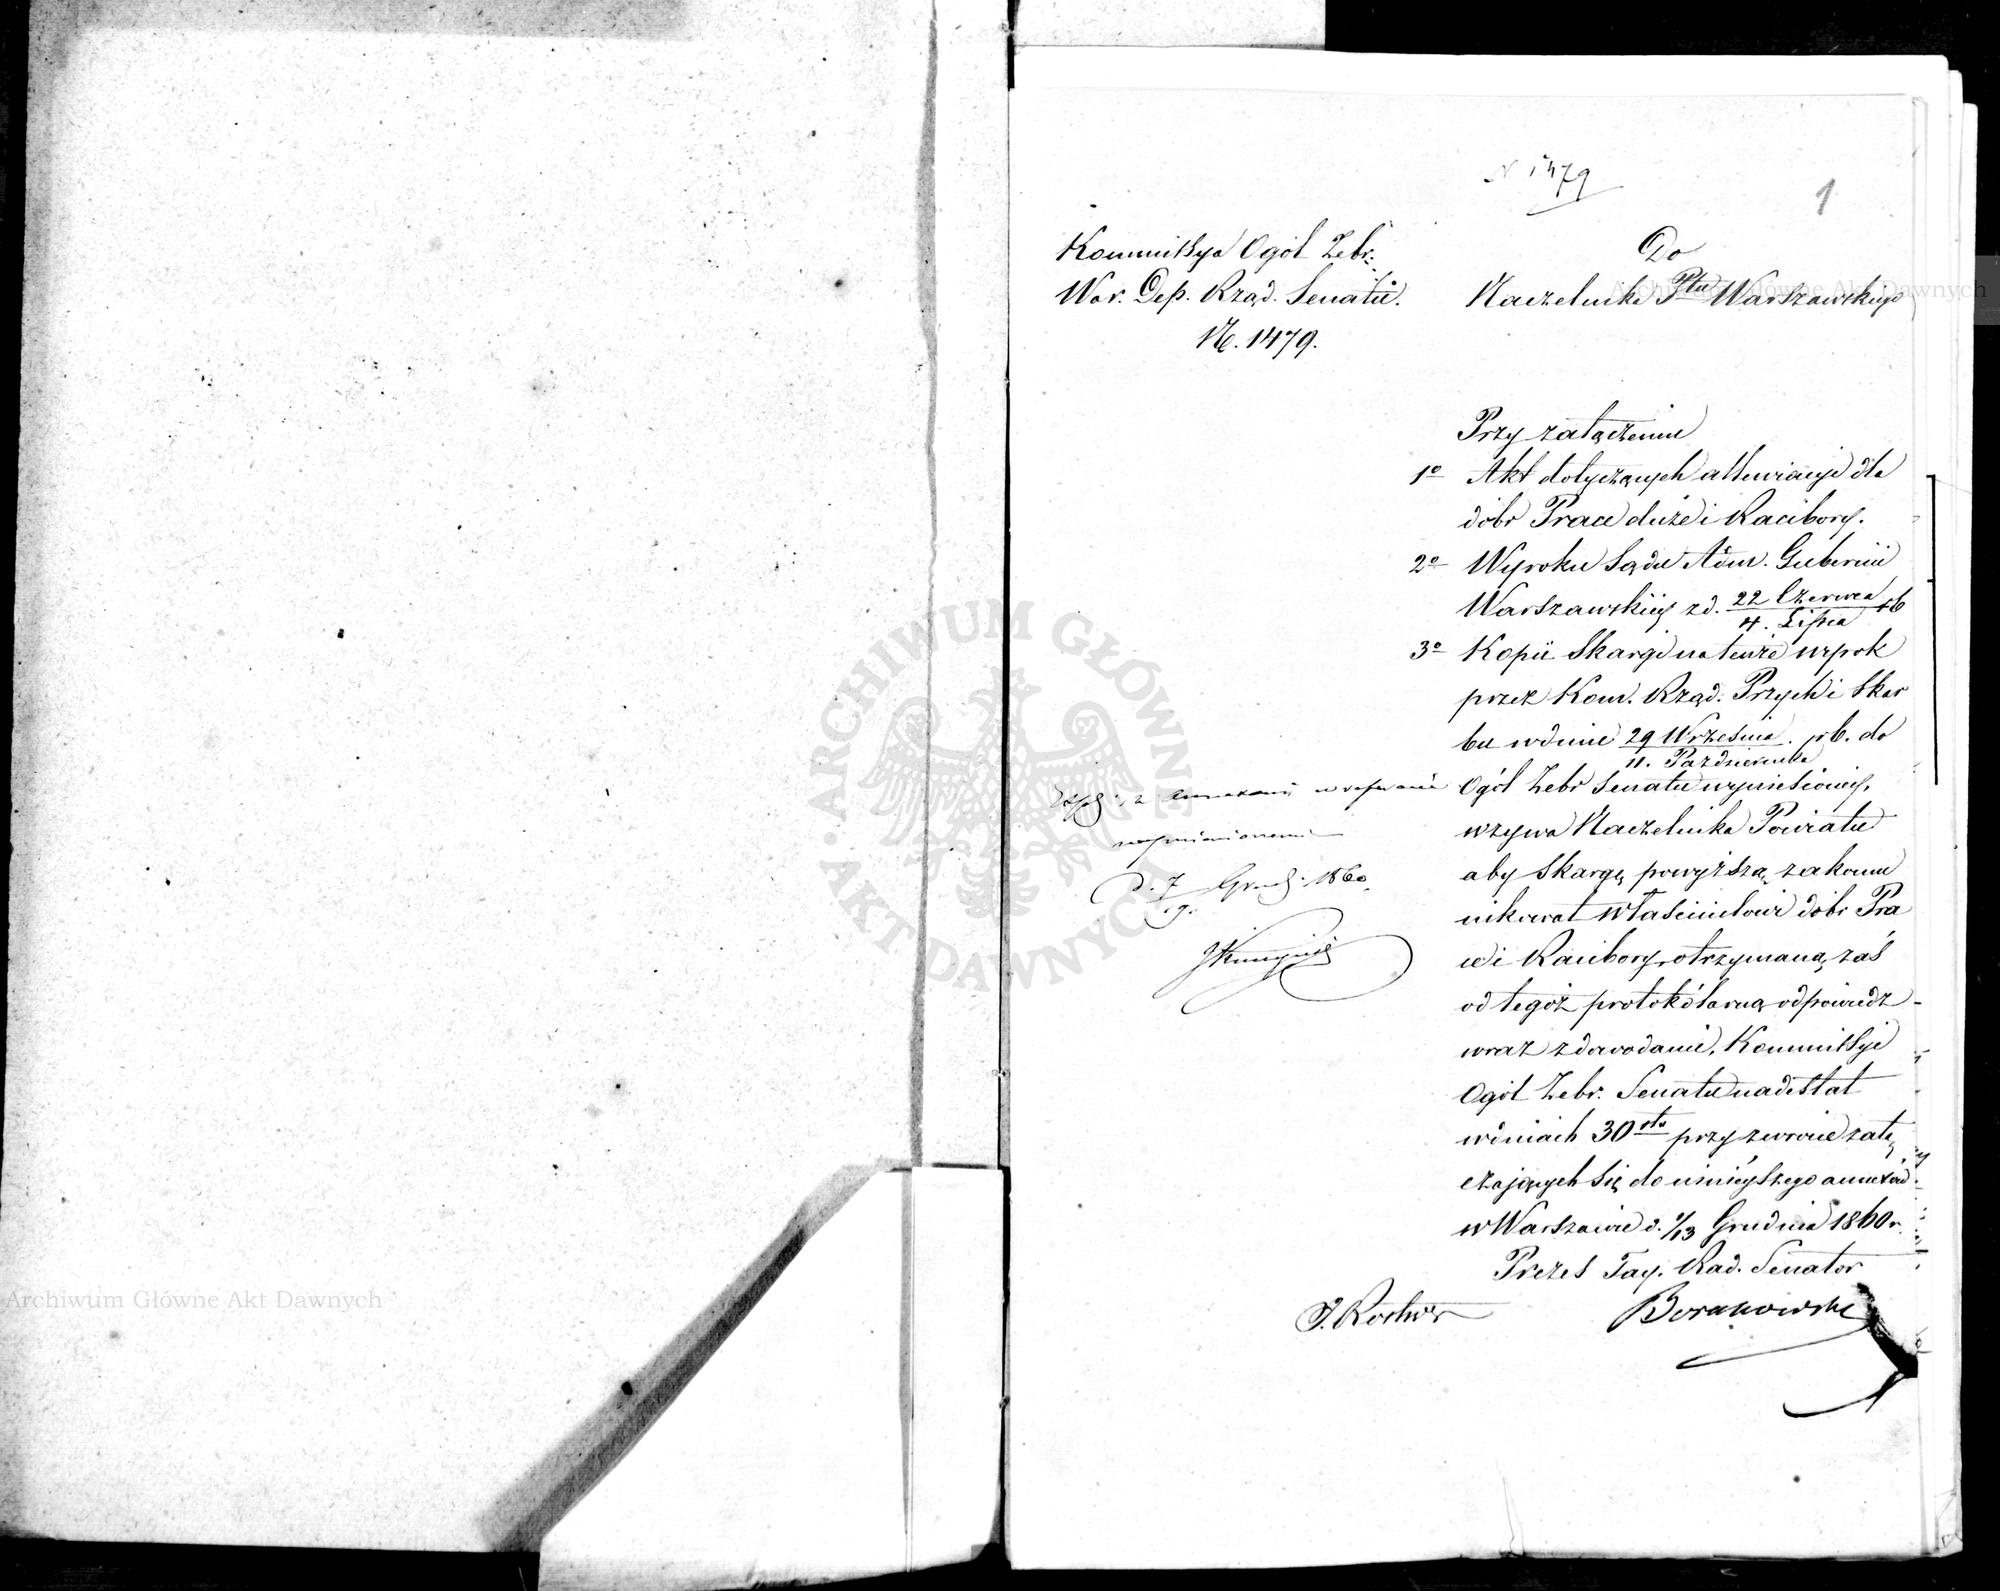 N 1479
1
Kommissya Ogól Zebr.
War. Dep. Rząd. Senatu.
N. 1479.
Do
Naczelnika Ptu Warszawskiego
Przy załączeniu
1o Akt dotyczących allewiacyi dla
dóbr Prace duże i Racibory.
2o Wyroku Sądu Adm. Gubernii
Warszawskiéy z d. 22 Czerwca / 4. Lipca rb
3o Kopii Skargi na tenże wyrok
przez Kom. Rząd. Przych i Skar
bu w dniu 29 Września / 11. Października rb. do
Ogól Zebr Senatu wyniesionéy,
wzywa Naczelnika Powiatu
aby Skargę powyższą zakomu
nikował właścicielowi dóbr Pra
ce i Racibory, otrzymaną zaś
od tegoż protokólarną odpowiedz
wraz z dowodami, Kommissyi
Ogól Zebr. Senatu nadesłał
w dniach 30stu przy zwrocie załą
czających się do ninieyszego annexów.
w Warszawie d. 1/13 Grudnia 1860 r.
Prezes Tay. Rad. Senator
z annexami w referacie
wymienionemi
d. 7/19. Grud. 1860
ARCHIWUM GŁÓWNE AKT DAWNYCH
Archiwum Główne Akt Dawnych
Archiwum Główne Akt Dawnych